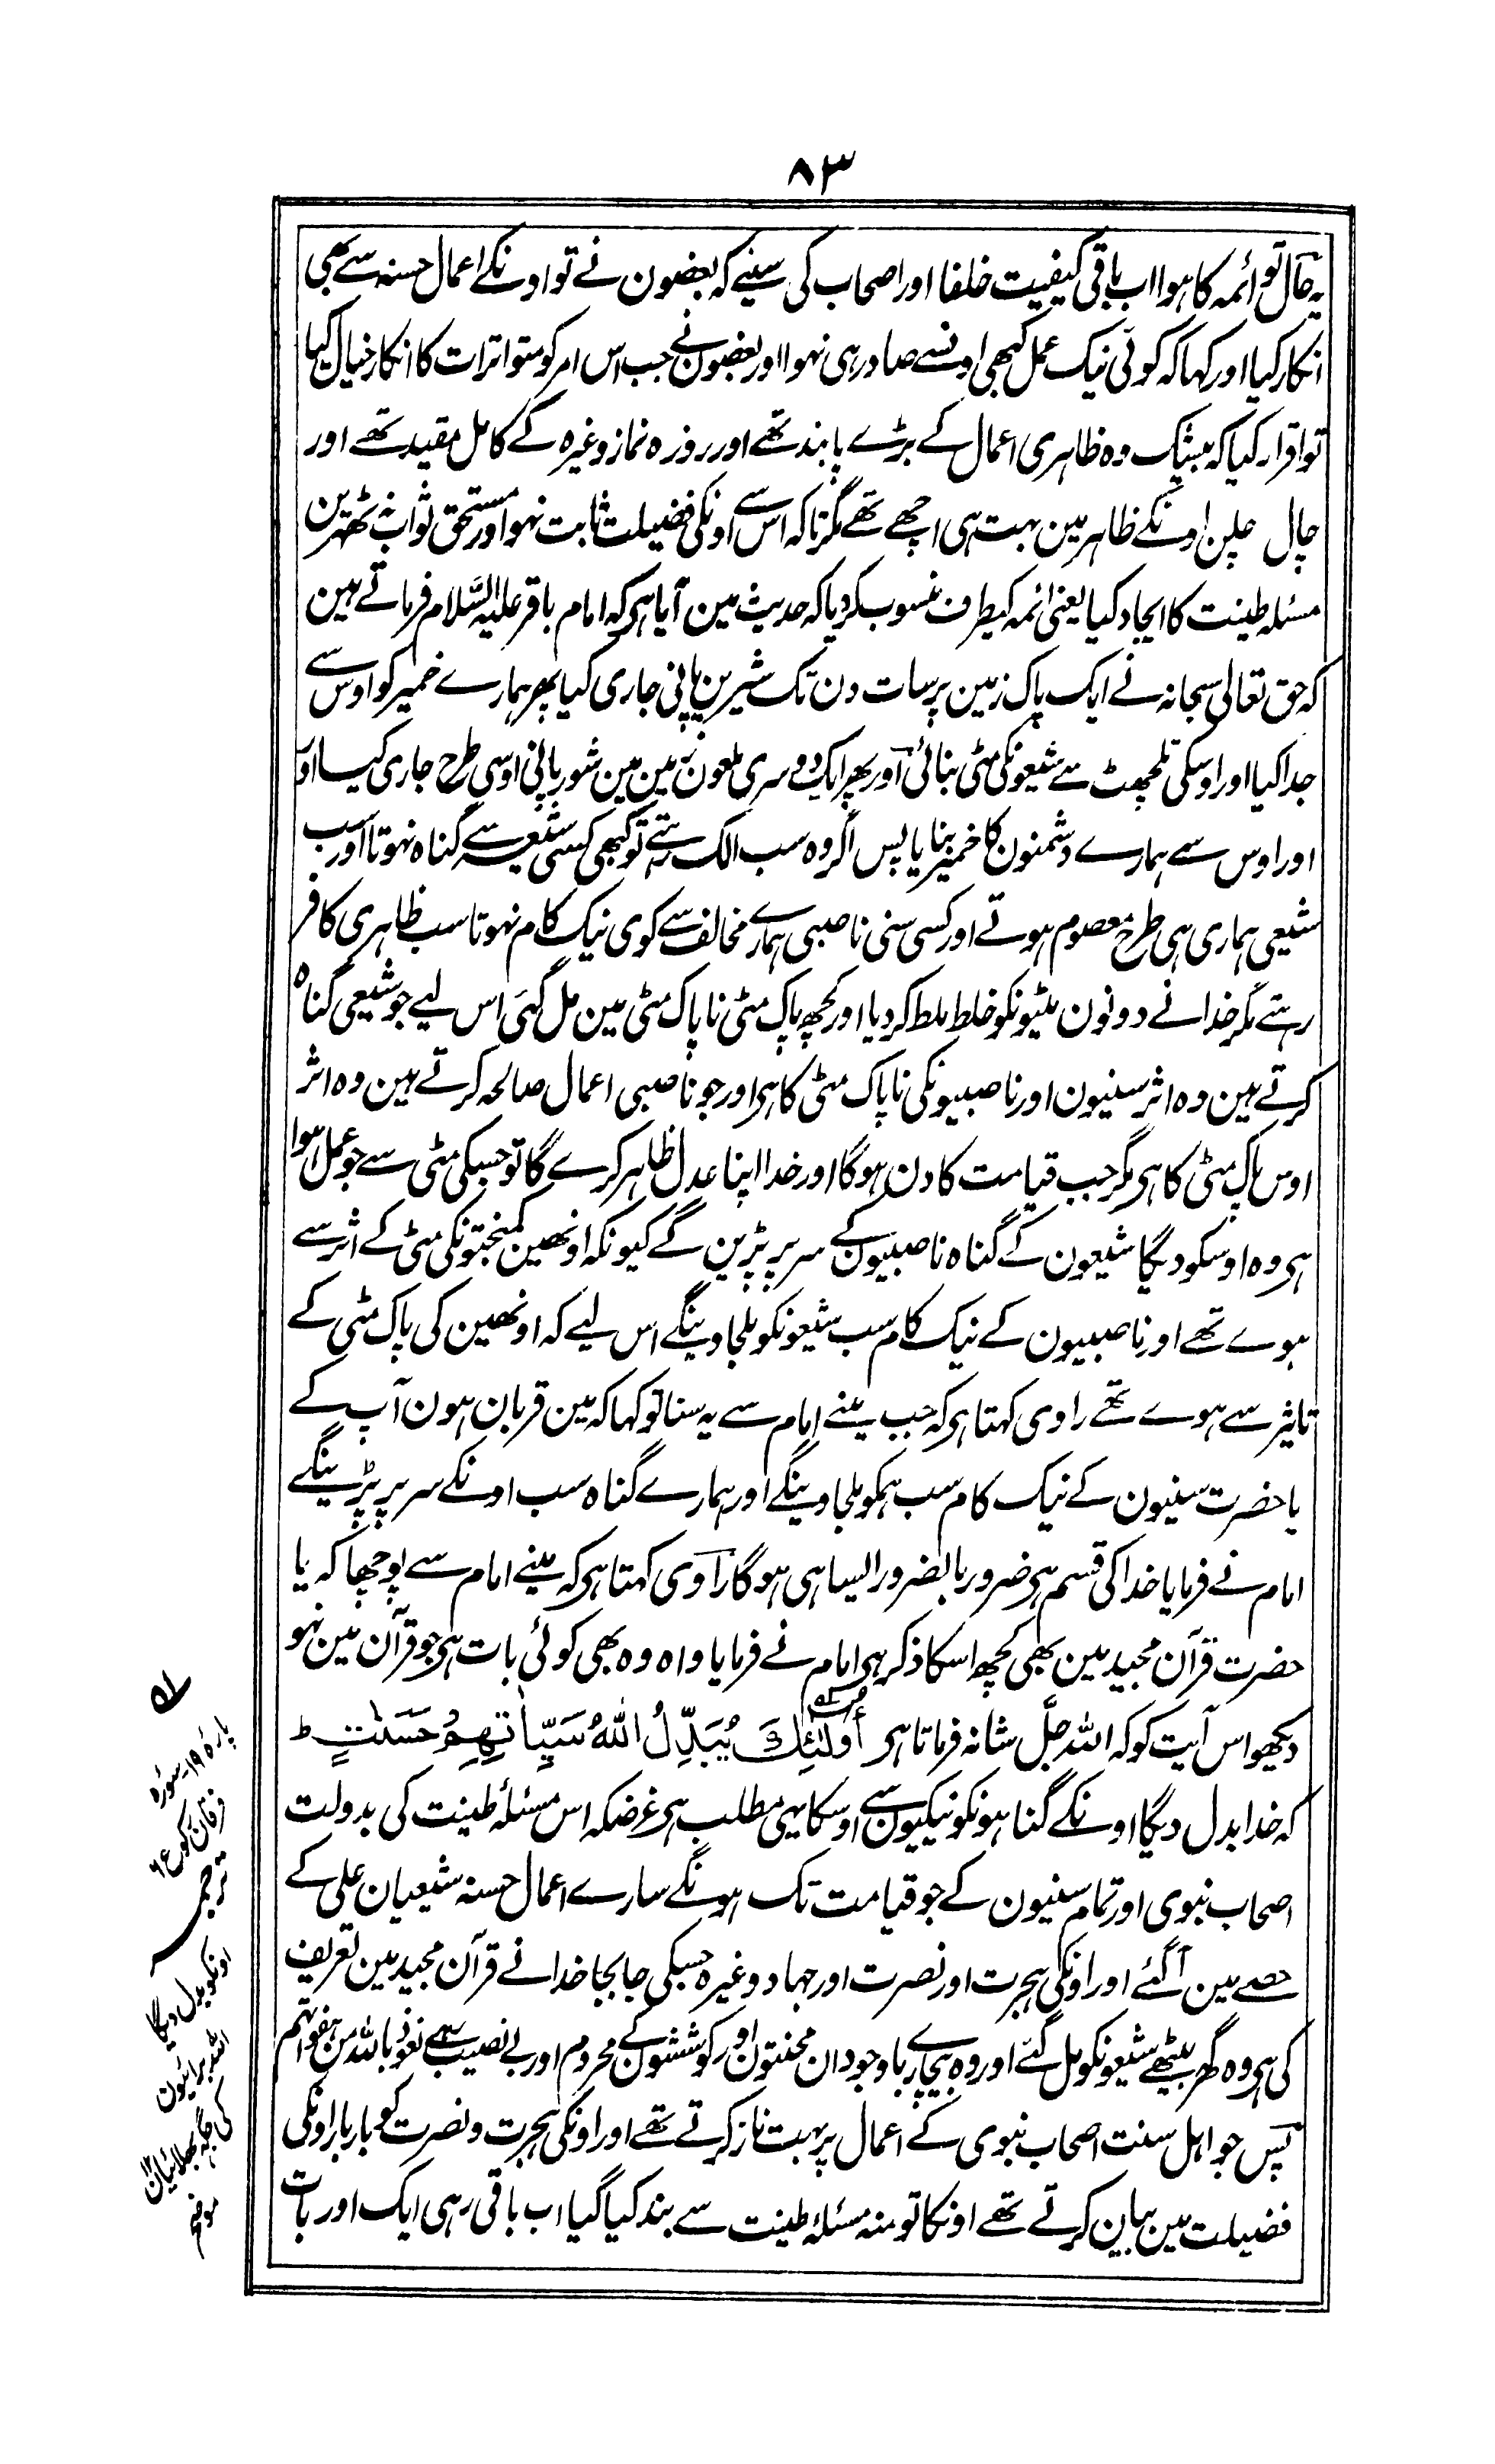 ۸۳
یہ حال تو ائمہ کا ہوا اب باقی کیفیت خلفا اور اصحاب کی سنیے کہ بعضون نے تو اونکے اعمال حسنہ سے بھی
انکار کیا اور کہا کہ کوئی نیک عمل کبھی اونسے صادر ہی نہوا اور بعضون نے جب اس امر کو متواترات کا انکار خیال کیا
تو اقرار کیا کہ بیشک وہ ظاہری اعمال کے بڑے پابند تھے اور روزہ نماز وغیرہ کے کامل مقید تھے اور
چال چلن اونکے ظاہر مین بہت ہی اچھے تھے مگر تاکہ اس سے اونکی فضیلت ثابت نہو اور مستحق ثواب نہ ٹھہرین
مسئلہ طینت کا ایجاد کیا یعنی ائمہ کیطرف منسوب کردیا کہ حدیث مین آیا ہی کہ امام باقر علیہ السَّلام فرماتے ہین
کہ حق تعالی سبحانہ نے ایک پاک زمین پر سات دن تک شیرین پانی جاری کیا پھر ہمارے خمیر کو اوس سے
جدا کیا اور اوسکی تلچھٹ سے شیعونکی مٹی بنائی اور پھر ایک دوسری ملعون زمین مین شور پانی اوسی طرح جاری کیا اور
اور اوس سے ہمارے دشمنون کا خمیر بنایا پس اگر وہ سب الگ رہتے تو کبھی کسی شیعہ سے گناہ نہوتا اور سب
شیعی ہماری ہی طرح معصوم ہوتے اور کسی سنی ناصبی ہمارے مخالف سے کوی نیک کام نہوتا سب ظاہری کافر
رہتے مگر خدا نے دونون مٹیونکو خلط ملط کردیا اور کچھ پاک مٹی ناپاک مٹی مین مل گئی اس لیے جو شیعی گناہ
کرتے ہین وہ اثر سنیون اور ناصبیونکی ناپاک مٹی کا ہی اور جو ناصبی اعمال صالحہ کرتے ہین وہ اثر
اوس پاک مٹی کا ہی مگر جب قیامت کا دن ہوگا اور خدا اپنا عدل ظاہر کرے گا تو جسکی مٹی سے جو عمل ہوا
ہی وہ اوسکو دیگا شیعون کے گناہ ناصبیون کے سر پر پڑین گے کیونکہ اونھین کمبختونکی مٹی کے اثر سے
ہوے تھے اور ناصبیون کے نیک کام سب شیعونکو ملجاوینگے اس لیے کہ اونھین کی پاک مٹی کے
تاثیر سے ہوے تھے راوی کہتا ہی کہ جب مینے امام سے یہ سنا تو کہا کہ مین قربان ہون آپ کے
یا حضرت سنیون کے نیک کام سب ہمکو ملجاوینگے اور ہمارے گناہ سب اونکے سر پر پڑینگے
امام نے فرمایا خدا کی قسم ہی ضرور بالضرور ایسا ہی ہوگا راوی کہتا ہی کہ مینے امام سے پوچھا کہ یا
حضرت قرآن مجید مین بھی کچھ اسکا ذکر ہی امام نے فرمایا واہ وہ بھی کوئی بات ہی جو قرآن مین نہو
دیکھو اس آیت کو کہ اللہ جلَّ شانہ فرماتا ہی أُولٰئِكَ یُبَدِّلُ اللهُ سَیِّاٰتِهِمْ حَسَنٰتٍ ط
کہ خدا بدل دیگا اونکے گناہونکو نیکیون سے اوسکا یہی مطلب ہی غرضکہ اس مسئلۂ طینت کی بدولت
اصحاب نبوی اور تمام سنیون کے جو قیامت تک ہونگے سارے اعمال حسنہ شیعیان علی کے
حصے مین آگئے اور اونکی ہجرت اور نصرت اور جہاد وغیرہ جسکی جابجا خدا نے قرآن مجید مین تعریف
کی ہی وہ گھر بیٹھے شیعونکو مل گئے اور وہ بیچارے باوجود ان محنتون اور کوششون کے محروم اور بے نصیب رہے نعوذ باللہ من ہفواتہم
پس جو اہل سنت اصحاب نبوی کے اعمال پر بہت ناز کرتے تھے اور اونکی ہجرت و نصرت کو بار بار اونکی
فضیلت مین بیان کرتے تھے اونکا تو منہ مسئلۂ طینت سے بند کیا گیا اب باقی رہی ایک اور بات
پارہ ۱۹ سورہ
فرقان رکوع ۶
ترجمہ
اونکو بدل دیگا
اللہ برائیون
کی جگہ بھلائیان ۱۲
موضح